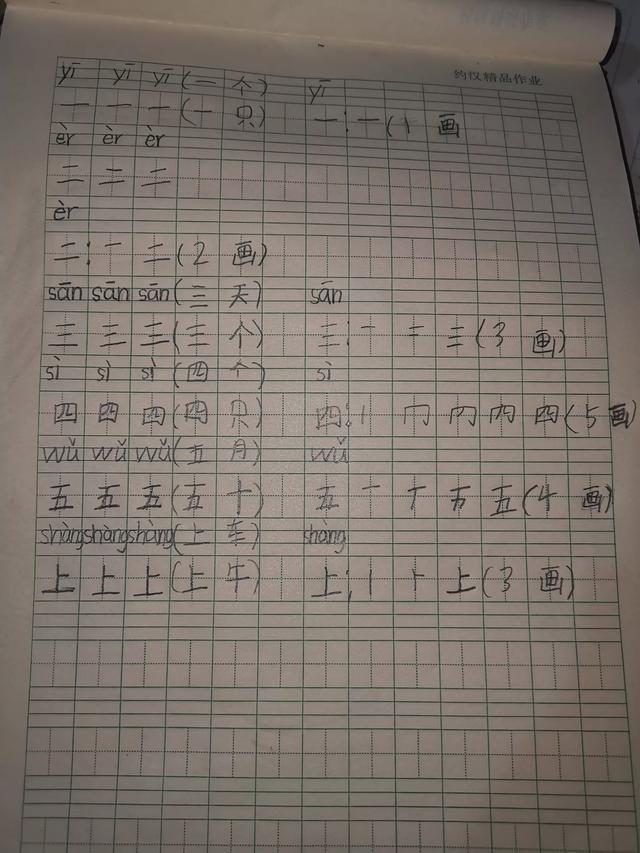 约汉精品作业
yī yī yī (一个) yī
一 一 一 (一只) 一: 一 (1画)
èr èr èr
二 二 二
èr
二: 一 二 (2画)
sān sān sān (三天) sān
三 三 三 (三个) 三: 一 二 三 (3画)
sì sì sì (四个) sì
四 四 四 (四只) 四: 丨 冂 四 (5画)
wǔ wǔ wǔ (五月) wǔ
五 五 五 (五十) 五 一 丅 五 (4画)
shàng shàng shàng (上车) shàng
上 上 上 (上午) 上: 丨 ⺊ 上 (3画)